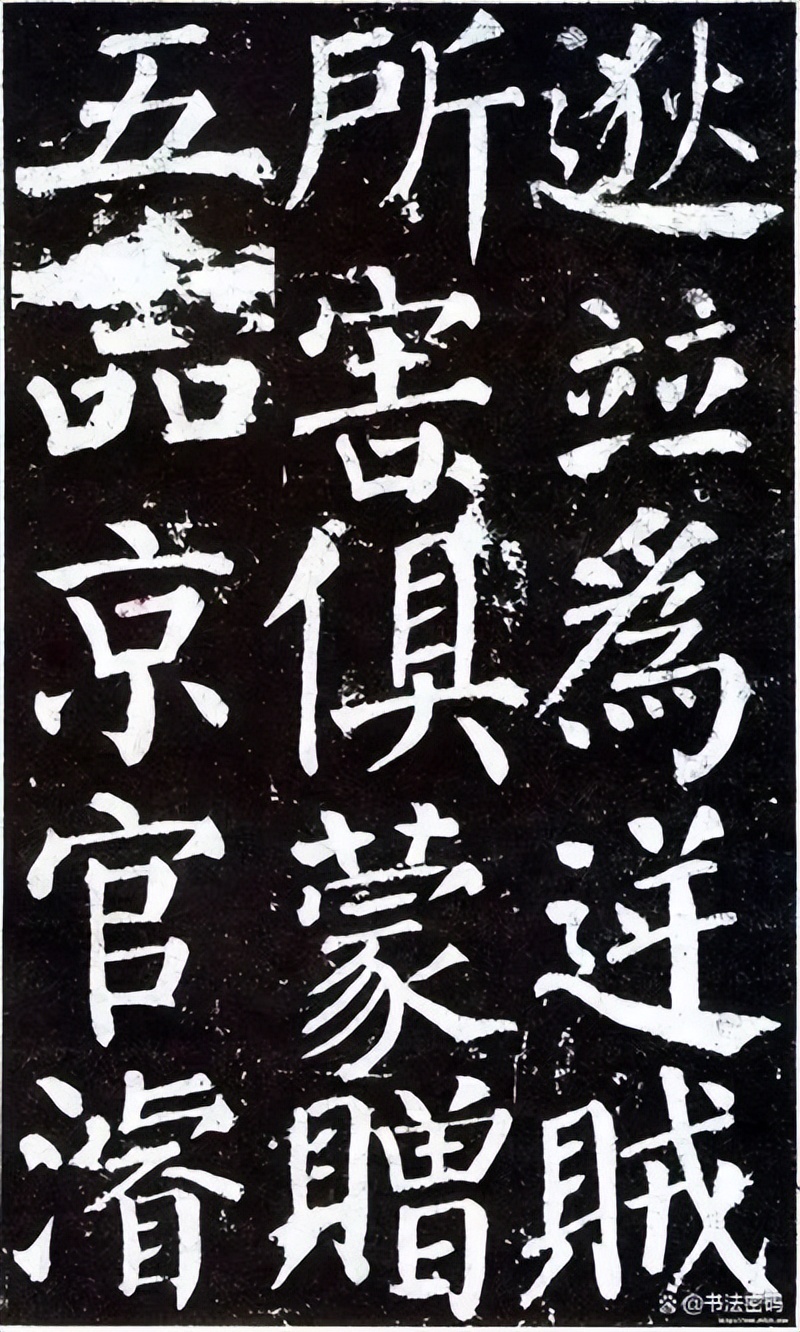 逖竝爲逆賊
所害俱蒙贈
五品京官濬
@书法密码